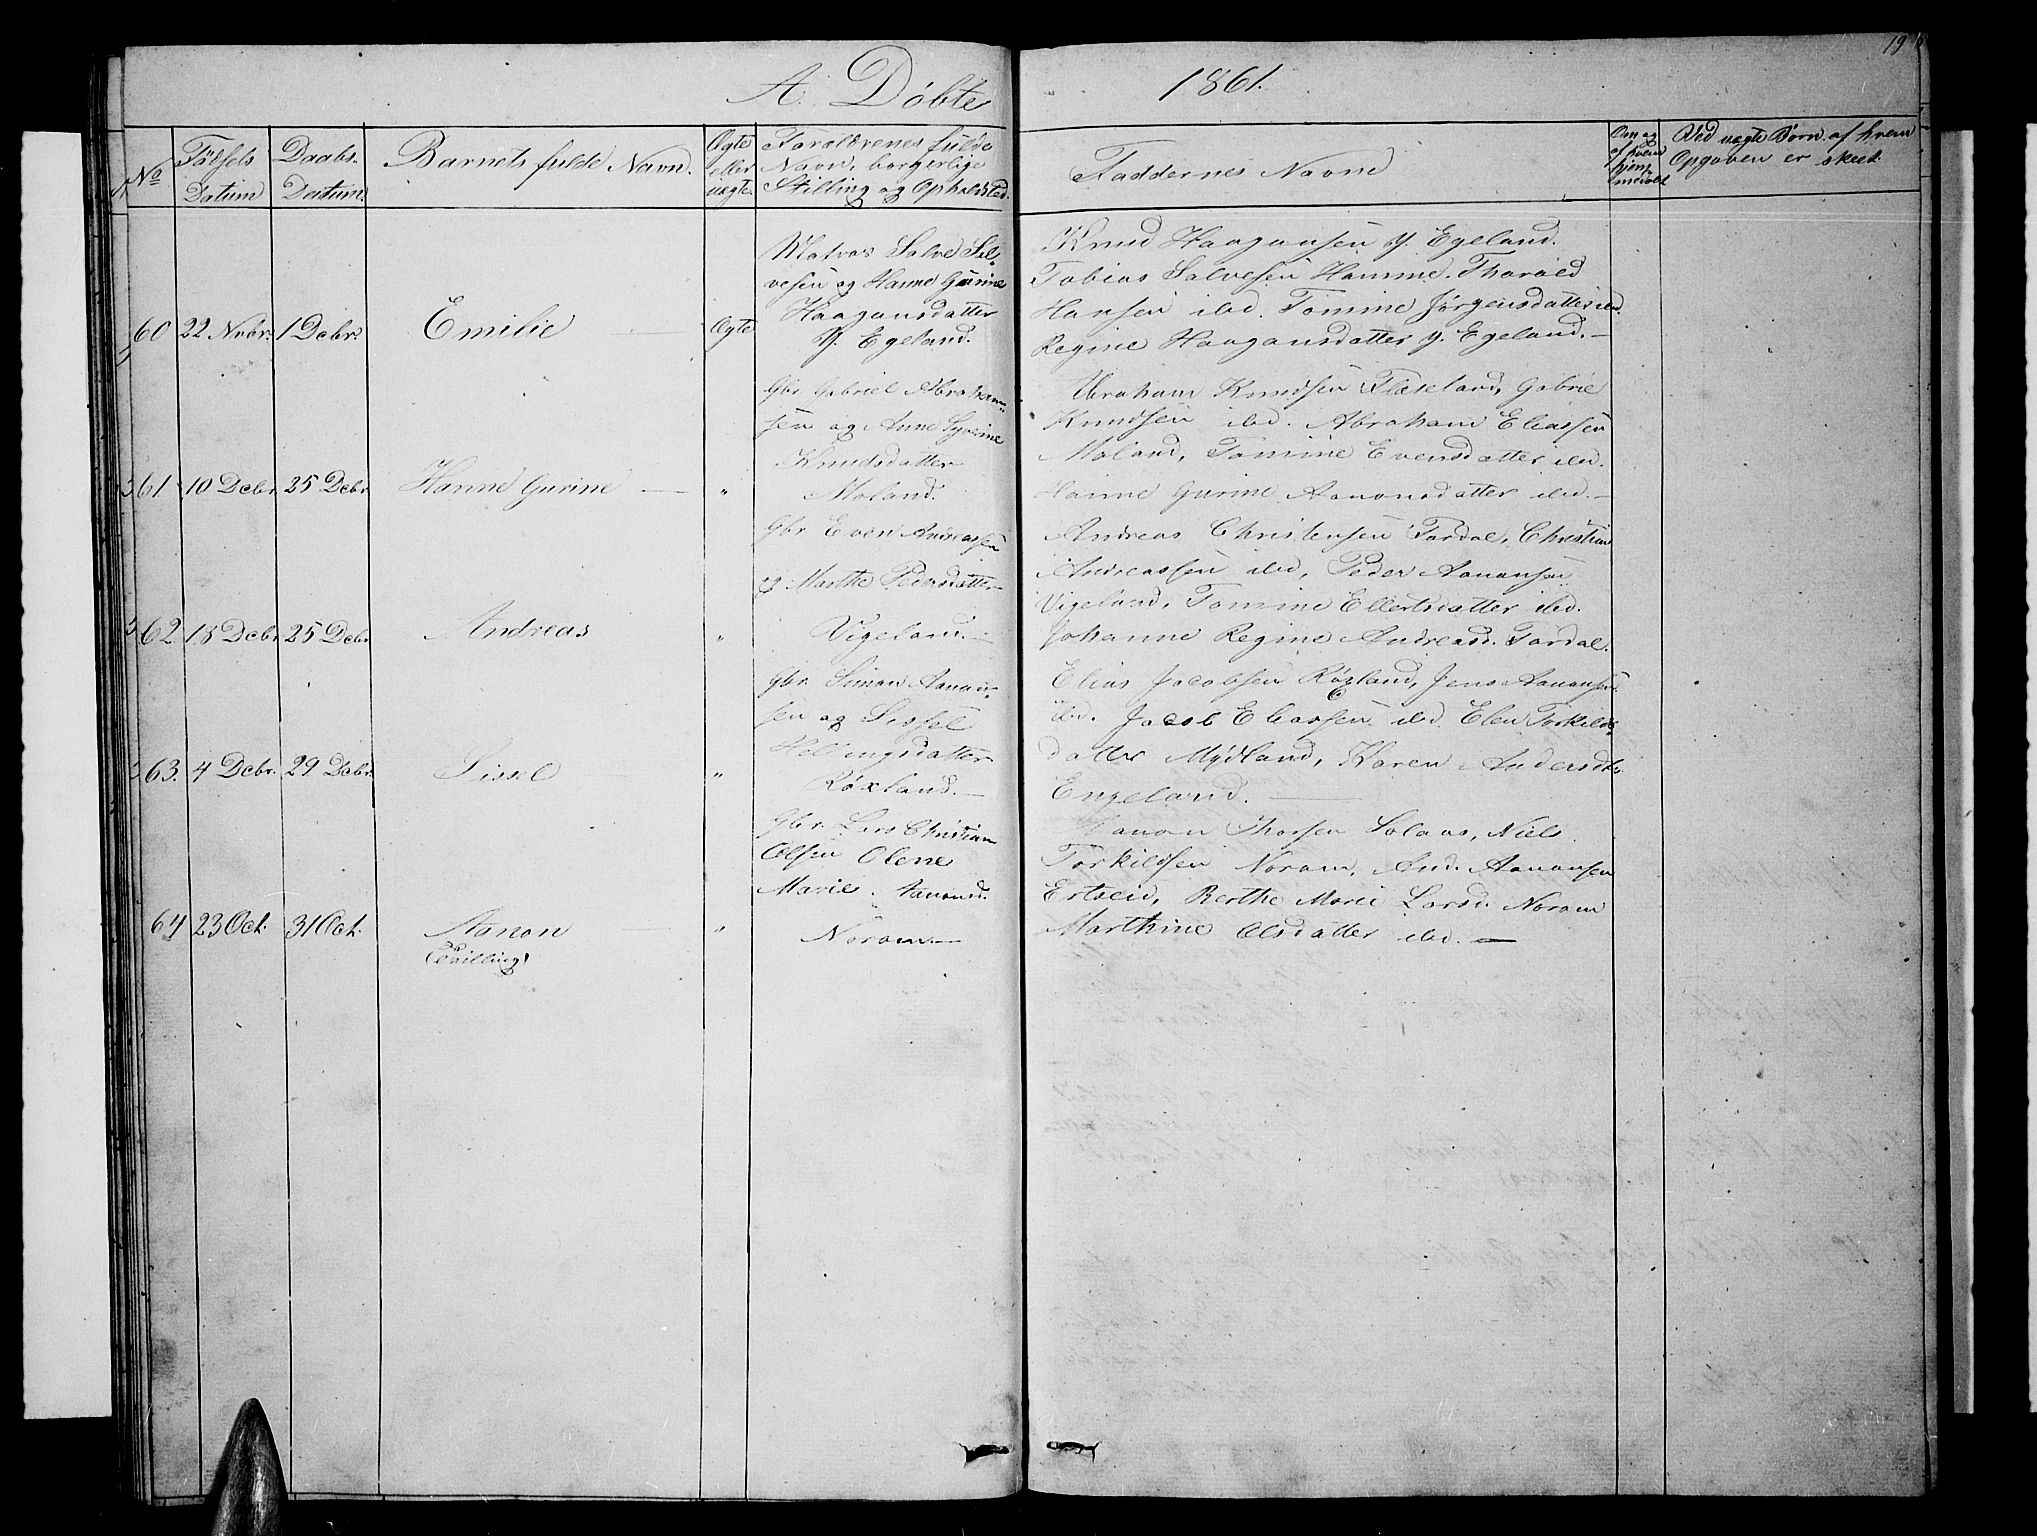 19
A. Döbte
1861.
No
Födsels
Datum
Daabs-
Datum.
Barnets fulde Navn.
Ægte
eller
uægte
Forældrenes fulde
Navn, borgerlige
Stilling og Opholdsted.
Faddernes Navne
Om og
af hvem
hjem-
medöbt
Ved uægte Børn af hvem
Opgaven er skeet.
60 22 Nvbr. 1 Dcbr. Emilie Ægte
Matros Salve Sal-
vesen og Hanne Gurine
Haagansdatter
Y. Egeland.
Knud Haagansen Y. Egeland.
Tobias Salvesen Hamme. Tharald
Hansen ibd. Tomine Jørgensdatter ibd.
Regine Haagansdatter Y. Egeland.
61 10 Dcbr. 25 Dcbr. Hanne Gurine "
Gbr. Gabriel Abraham-
sen og Anne Syrine
Knudsdatter
Moland.
Abraham Knudsen Flæseland, Gabriel
Knudsen ibd. Abraham Eliassen
Moland, Tomine Evensdatter ibd.
Hanne Gurine Aanonsdatter ibd.
62 18 Dcbr. 25 Dcbr. Andreas "
Gbr. Even Andreassen
og Marthe Pedersdatter
Vigeland.
Andreas Christensen Fardal, Christian
Andreassen ibd, Peder Aanansen
Vigeland, Tomine Ellertsdatter ibd.
Johanne Regine Andreasd. Fardal.
63. 4 Dcbr. 29 Dcbr. Sissel "
Gbr. Simon Aanan-
sen og Sissel
Hellingsdatter
Røxland.
Elias Jacobsen Røxland, Jens Aanansen
ibd. Jacob Eliassen ibd Elen Torkilds-
datter Mydland, Karen Andersdtr.
Engeland.
64 23 Oct. 31 Oct. Aanon "
(Tvilling)
Gbr. Lars Christian
Olsen Olene
Marie Aanonsd.
Noram
Aanon Thorsen Solaas, Niels
Torkildsen Noram, And. Aanansen
Ertseid, Berthe Marie Larsd. Noram
Marthine Olsdatter ibd.